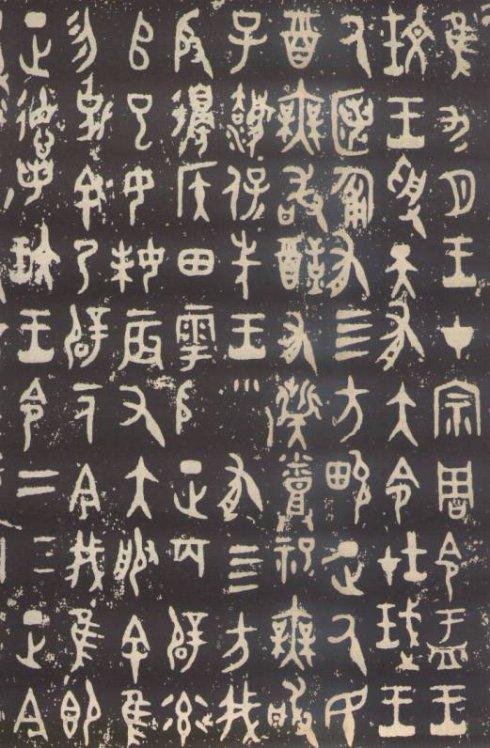 隹九月王才宗周令盂王
玟王受天有大令在珷王
氒匿匍有四方畯正氒民
酉無敢酖有祡蒸祀無敢
子灋保先王有四方我
殷邊侯田雩殷正百辟率
𠂤已女妹辰又大服余隹
勿克余乃辟一人今我隹即
正德若玟王令二三正今